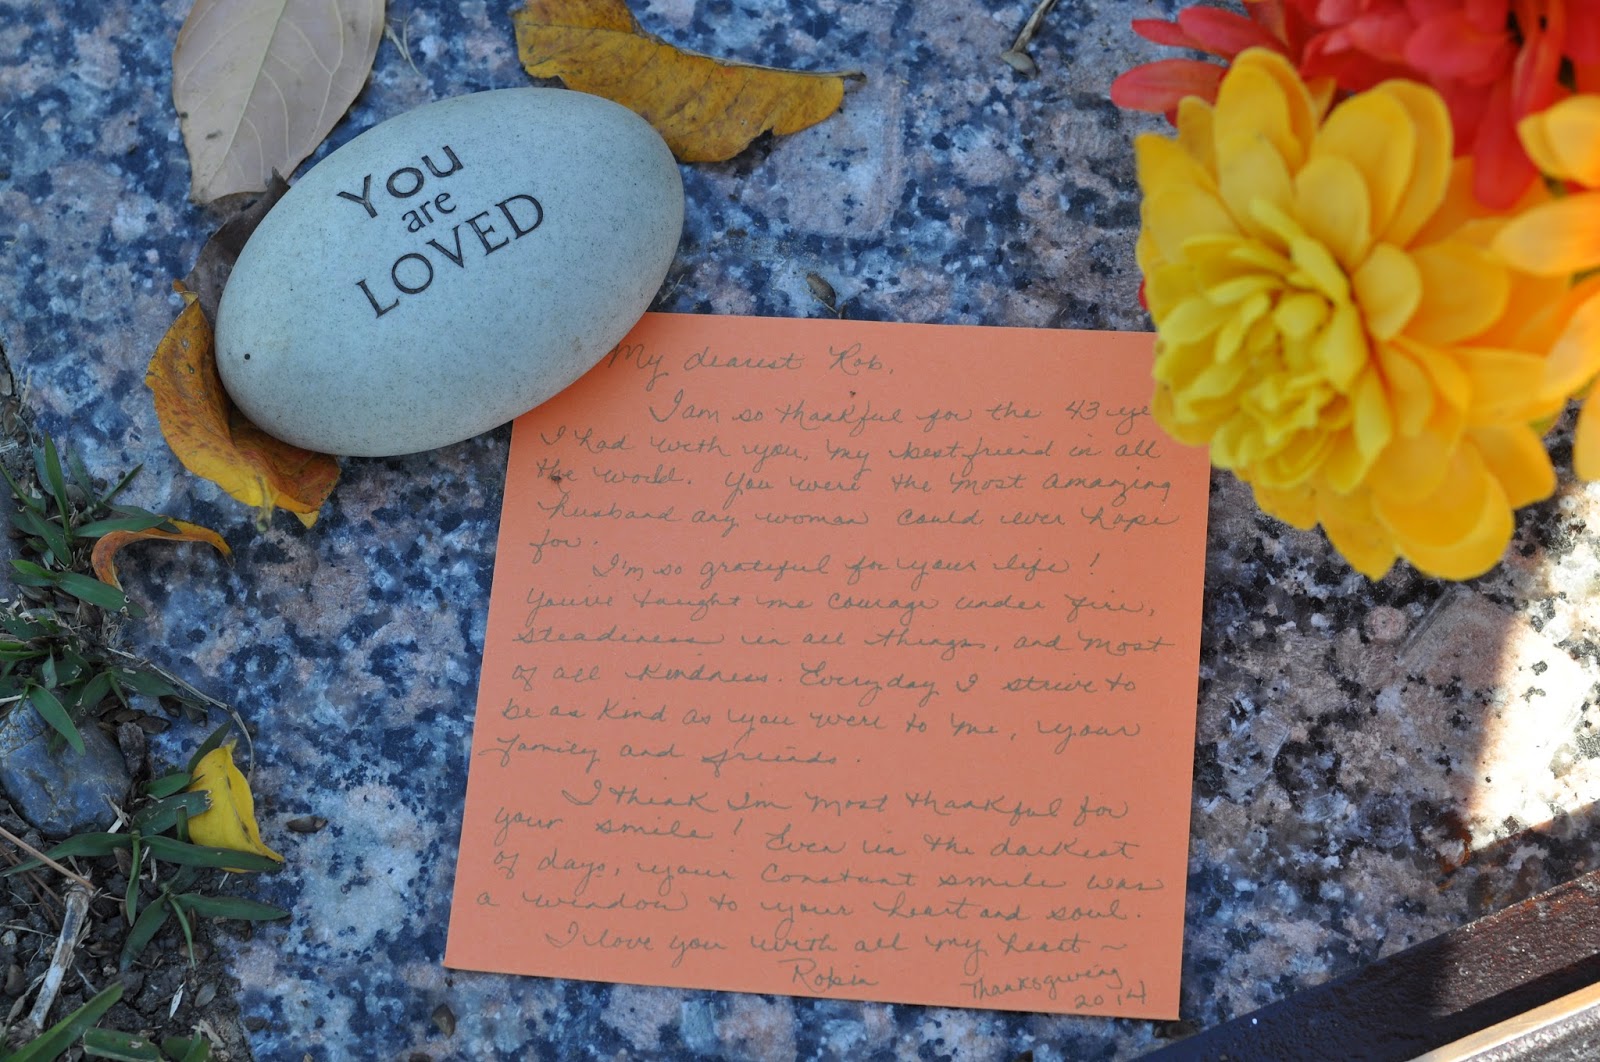 You
are
LOVED
My dearest Rob,
I am so thankful for the 43 ye
I had with you, my best friend in all
the world. You were the most amazing
husband any woman could ever hope
for.
I'm so grateful for your life!
You've taught me courage under fire,
steadiness in all things, and most
of all kindness. Everyday I strive to
be as kind as you were to me, your
family and friends.
I think I'm most thankful for
your smile! Even in the darkest
of days, your constant smile was
a window to your heart and soul.
I love you with all my heart ~
Robin
Thanksgiving
2014